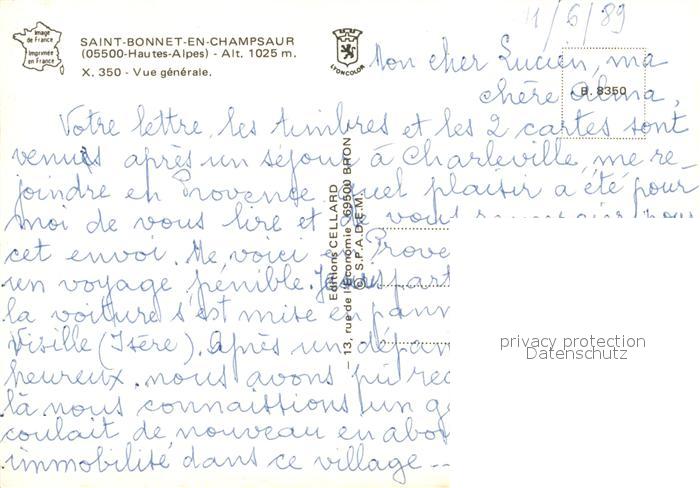 Image de France
Imprimée en France
SAINT-BONNET-EN-CHAMPSAUR
(05500-Hautes-Alpes) - Alt. 1025 m.
X. 350 - Vue générale.
LYONCOLOR
B. 8350
Editions CELLARD
13, rue de l'Economie - 69500 BRON
© S.P.A.D.E.M.
11/6/89
Mon cher Lucien, ma
chère Alma,
Votre lettre, les timbres et les 2 cartes sont
venus après un séjour à Charleville, me re-
joindre en Provence. quel plaisir a été pour
moi de vous lire et de vous
cet envoi. Me voici en Prove
un voyage pénible. part
la voiture s'est mise en pann
Visille (Isère). Après un dépan
heureux. nous avons pu
là nous connaissions un
coulait de nouveau en abo
immobilité dans ce village --
privacy protection
Datenschutz